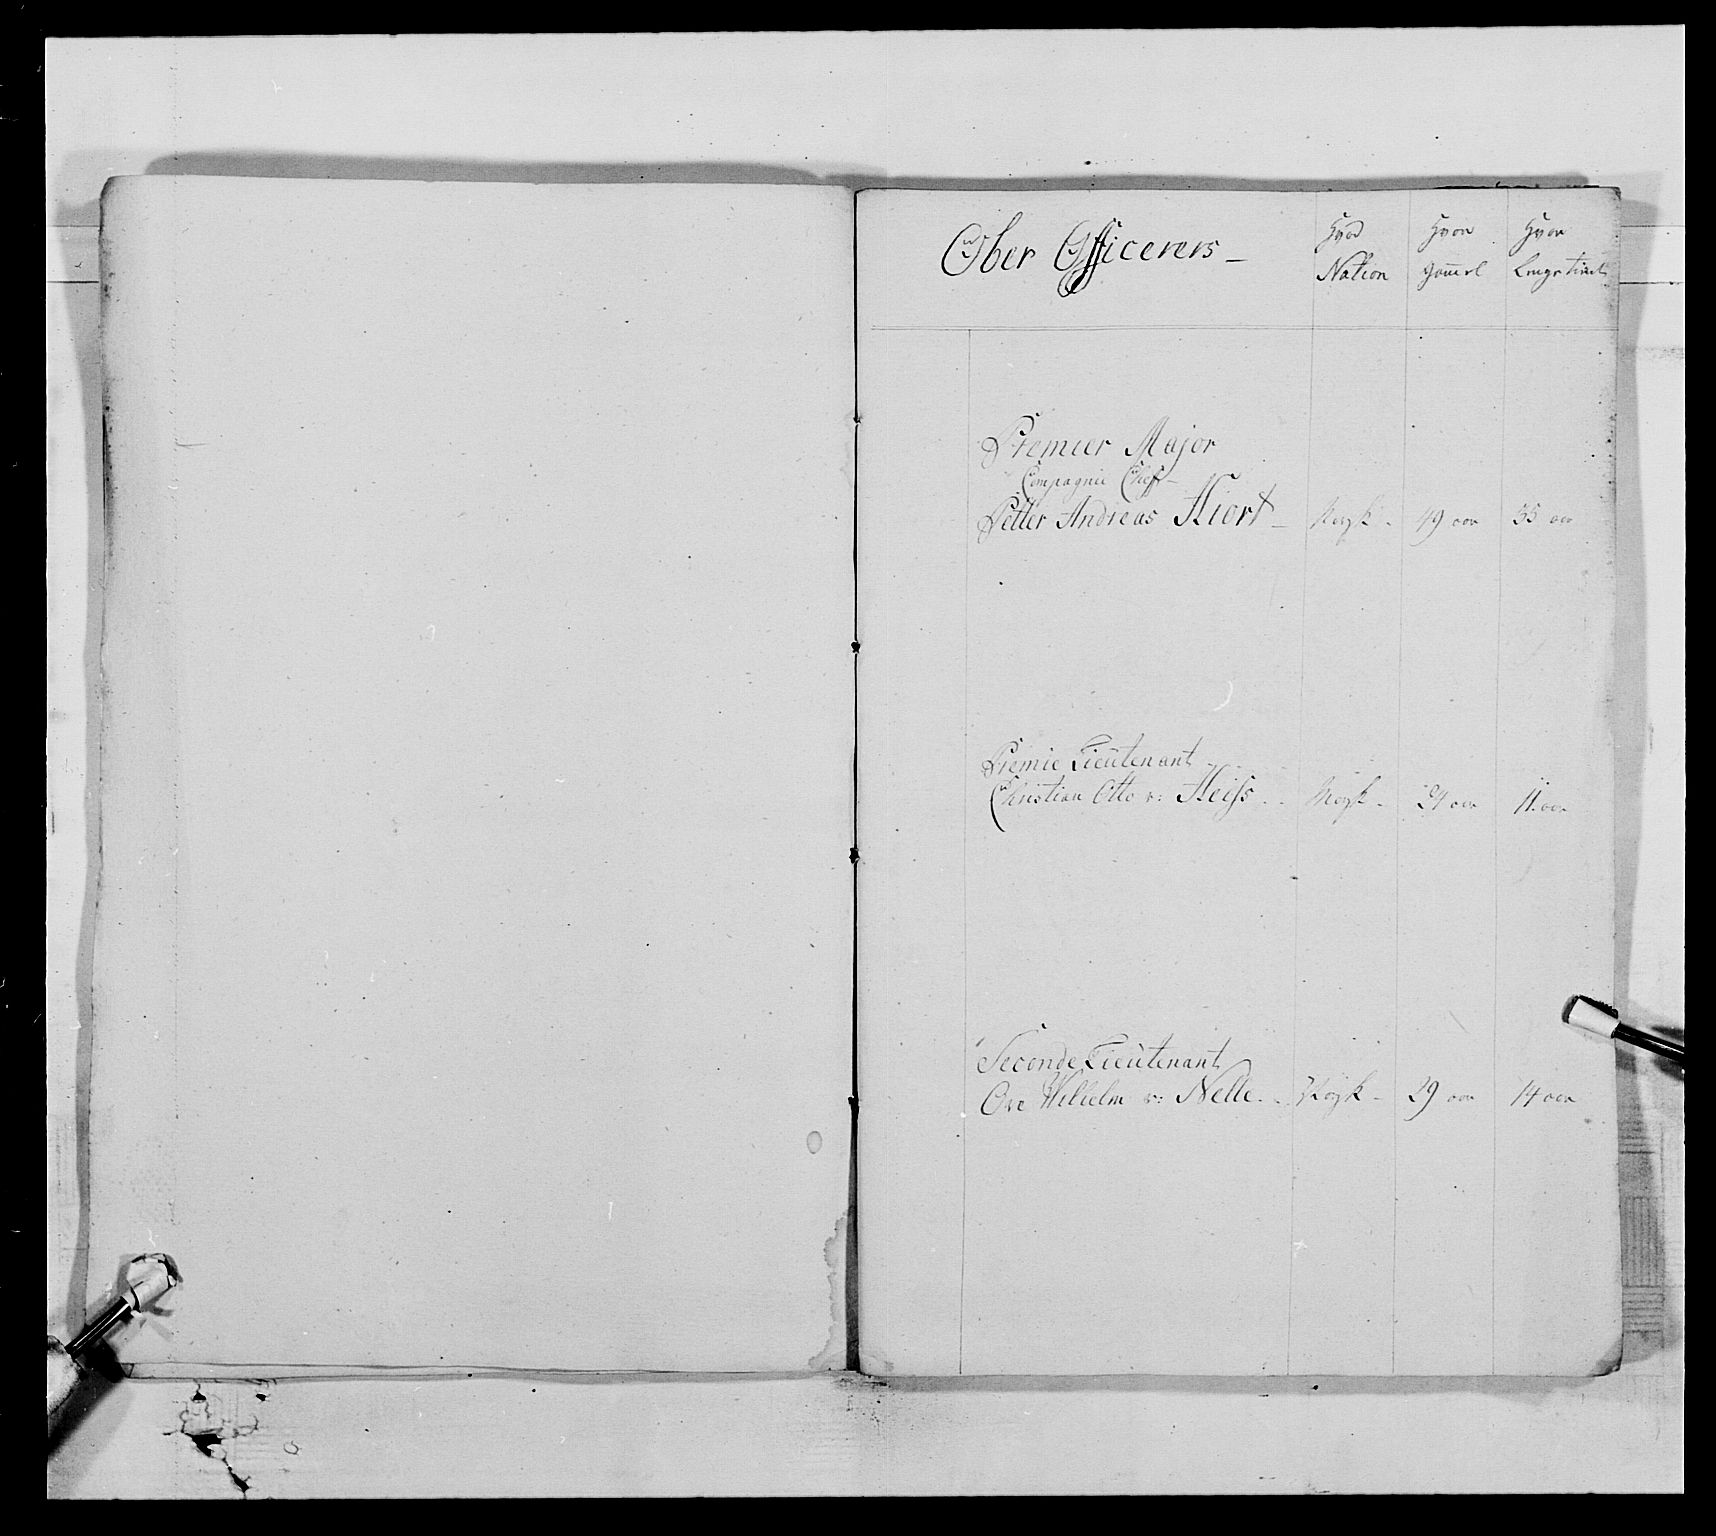 Ober Officerers –
Hvad Nation
Hvor Gamel
Hvor Lenge tient
Premier Major
Compagnie Chef –
Petter Andreas Hiort – Norsk – 49 aar 35 aar
Premie Lieutenant
Christian Otto v: Heiss . . Norsk – aar 11 aar
Seconde Lieutenant
Ove Wilhelm v: Nelle . . Norsk – 29 aar 14 aar